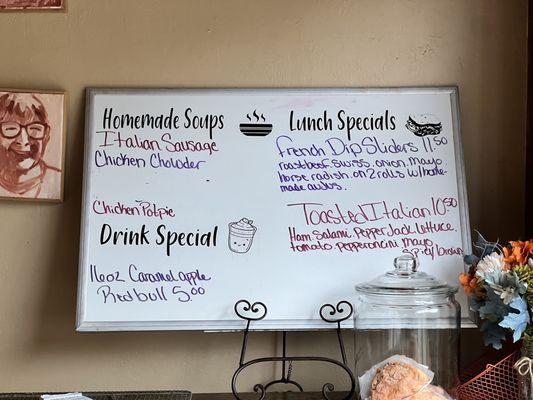 Homemade Soups
Italian Sausage
Chicken Chowder
Chicken Potpie
Drink Special
16oz Caramel apple
Redbull 5.00
Lunch Specials
French Dip Sliders 11.50
roast beef. swiss. onion. mayo
horse radish. on 2 rolls w/ home-
made aujus.
Toasted Italian 10.50
Ham. Salami. Pepper Jack. lettuce.
tomato. pepperoncini. mayo
spicy brown